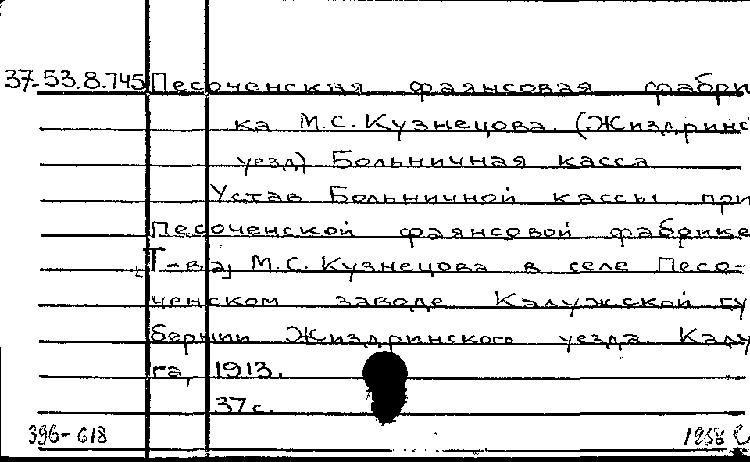 37-53.8.745 Песоченская фаянсовая фабри
ка М.С. Кузнецова. (Жиздринс
уезд) Больничная касса
Устав Больничной кассы при
Песоченской фаянсовой фабрике
[Т-ва] М.С. Кузнецова в селе Песо-
ченском заводе Калужской гу
бернии Жиздринского уезда Калу
га, 1913.
37 с.
396-618 1958